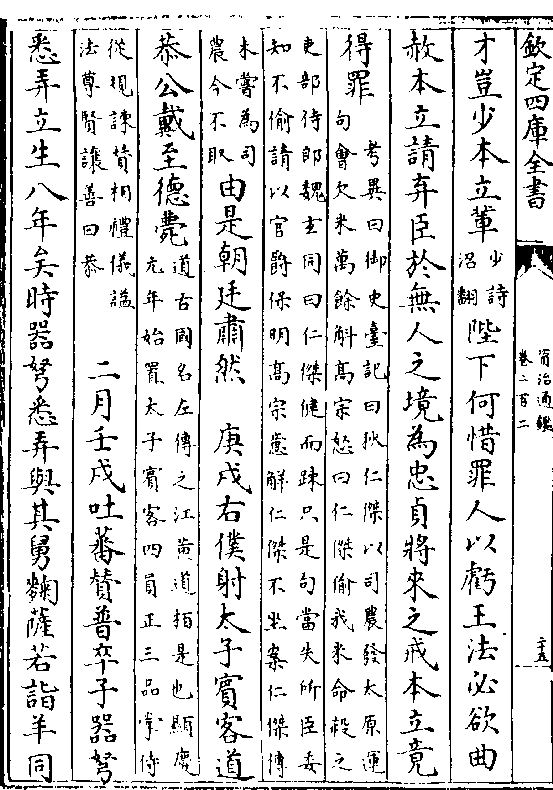 欽定四庫全書
資治通鑑
卷二百二
二十五
才豈少本立輩少詩沼翻陛下何惜罪人以虧王法必欲曲
赦本立請弃臣於無人之境為忠貞將來之戒本立竟
得罪考異曰御史臺記曰狄仁傑以司農發太原運句會欠米萬餘斛高宗怒曰仁傑偷我米命殺之
吏部侍郎魏玄同曰仁傑健而踈只是句當失所臣委知不偷請以官爵保明高宗黨解仁傑不坐案仁傑傳
未嘗為司農今不取由是朝廷肅然 庚戌右僕射太子賓客道
恭公戴至德薨道古國名左傳之江黄道栢是也顯慶元年始置太子賓客四員正三品掌侍
從規諫賛相禮儀諡法尊賢讓善曰恭 二月壬戌吐蕃賛普卒子器弩
悉弄立生八年矣時器弩悉弄與其舅麴薩若詣羊同